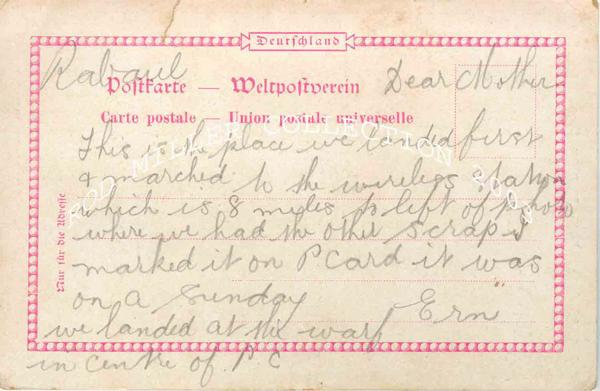 Deutschland
Rabaul
Postkarte — Weltpostverein
Dear Mother
Carte postale — Union postale universelle
This is the place we landed first
& marched to the wireless station
which is 8 miles to left of photo
where we had the other scrap I
marked it on P Card it was
on a Sunday Ern
we landed at the warf
in centre of P.C
Nur für die Adresse
ROD MILLER COLLECTION